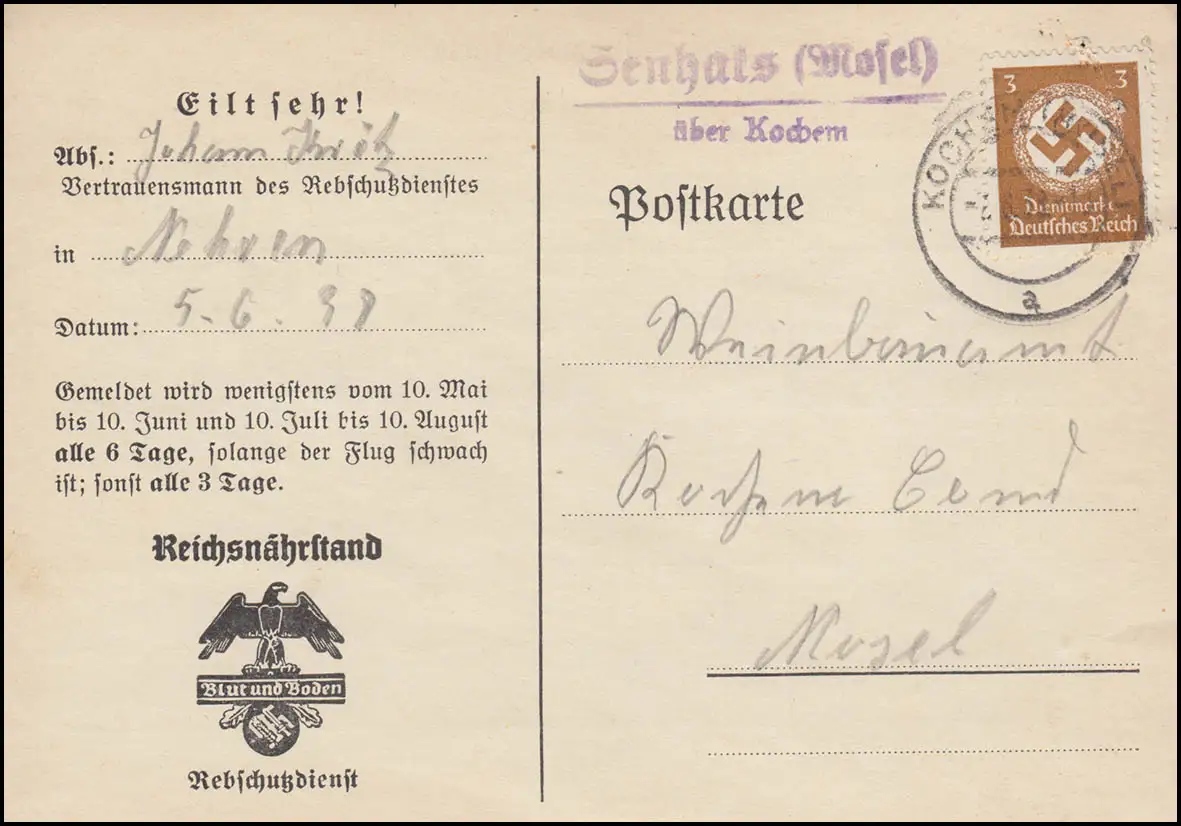 Eilt sehr!
Abs.: Johann
Vertrauensmann des Rebschutzdienstes
in Nehren
Datum: 5.6.38
Gemeldet wird wenigstens vom 10. Mai
bis 10. Juni und 10. Juli bis 10. August
alle 6 Tage, solange der Flug schwach
ist; sonst alle 3 Tage.
Reichsnährstand
Blut und Boden
Rebschutzdienst
Senhals (Mosel)
über Kochem
Postkarte
3 3
Dienstmarke
Deutsches Reich
KOCHEM
a
Weinbauamt
Kochem Cond
Mosel